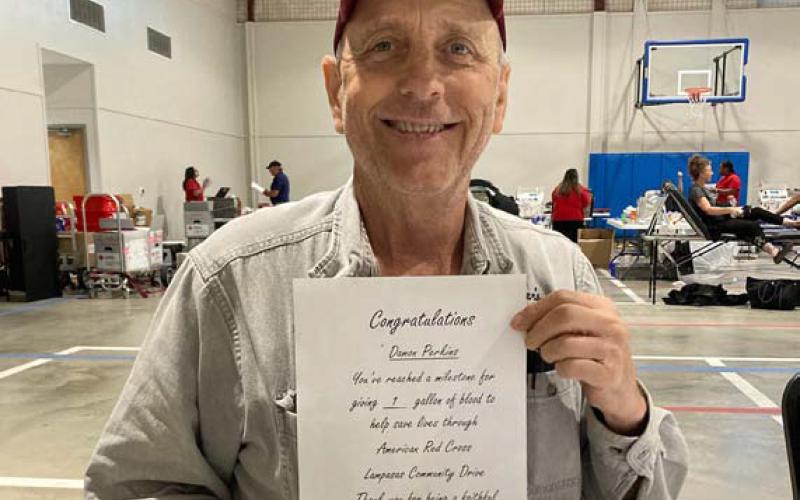 Congratulations
Damon Perkins
You've reached a milestone for
giving 1 gallon of blood to
help save lives through
American Red Cross
Lampasas Community Drive
Thank you for being a faithful